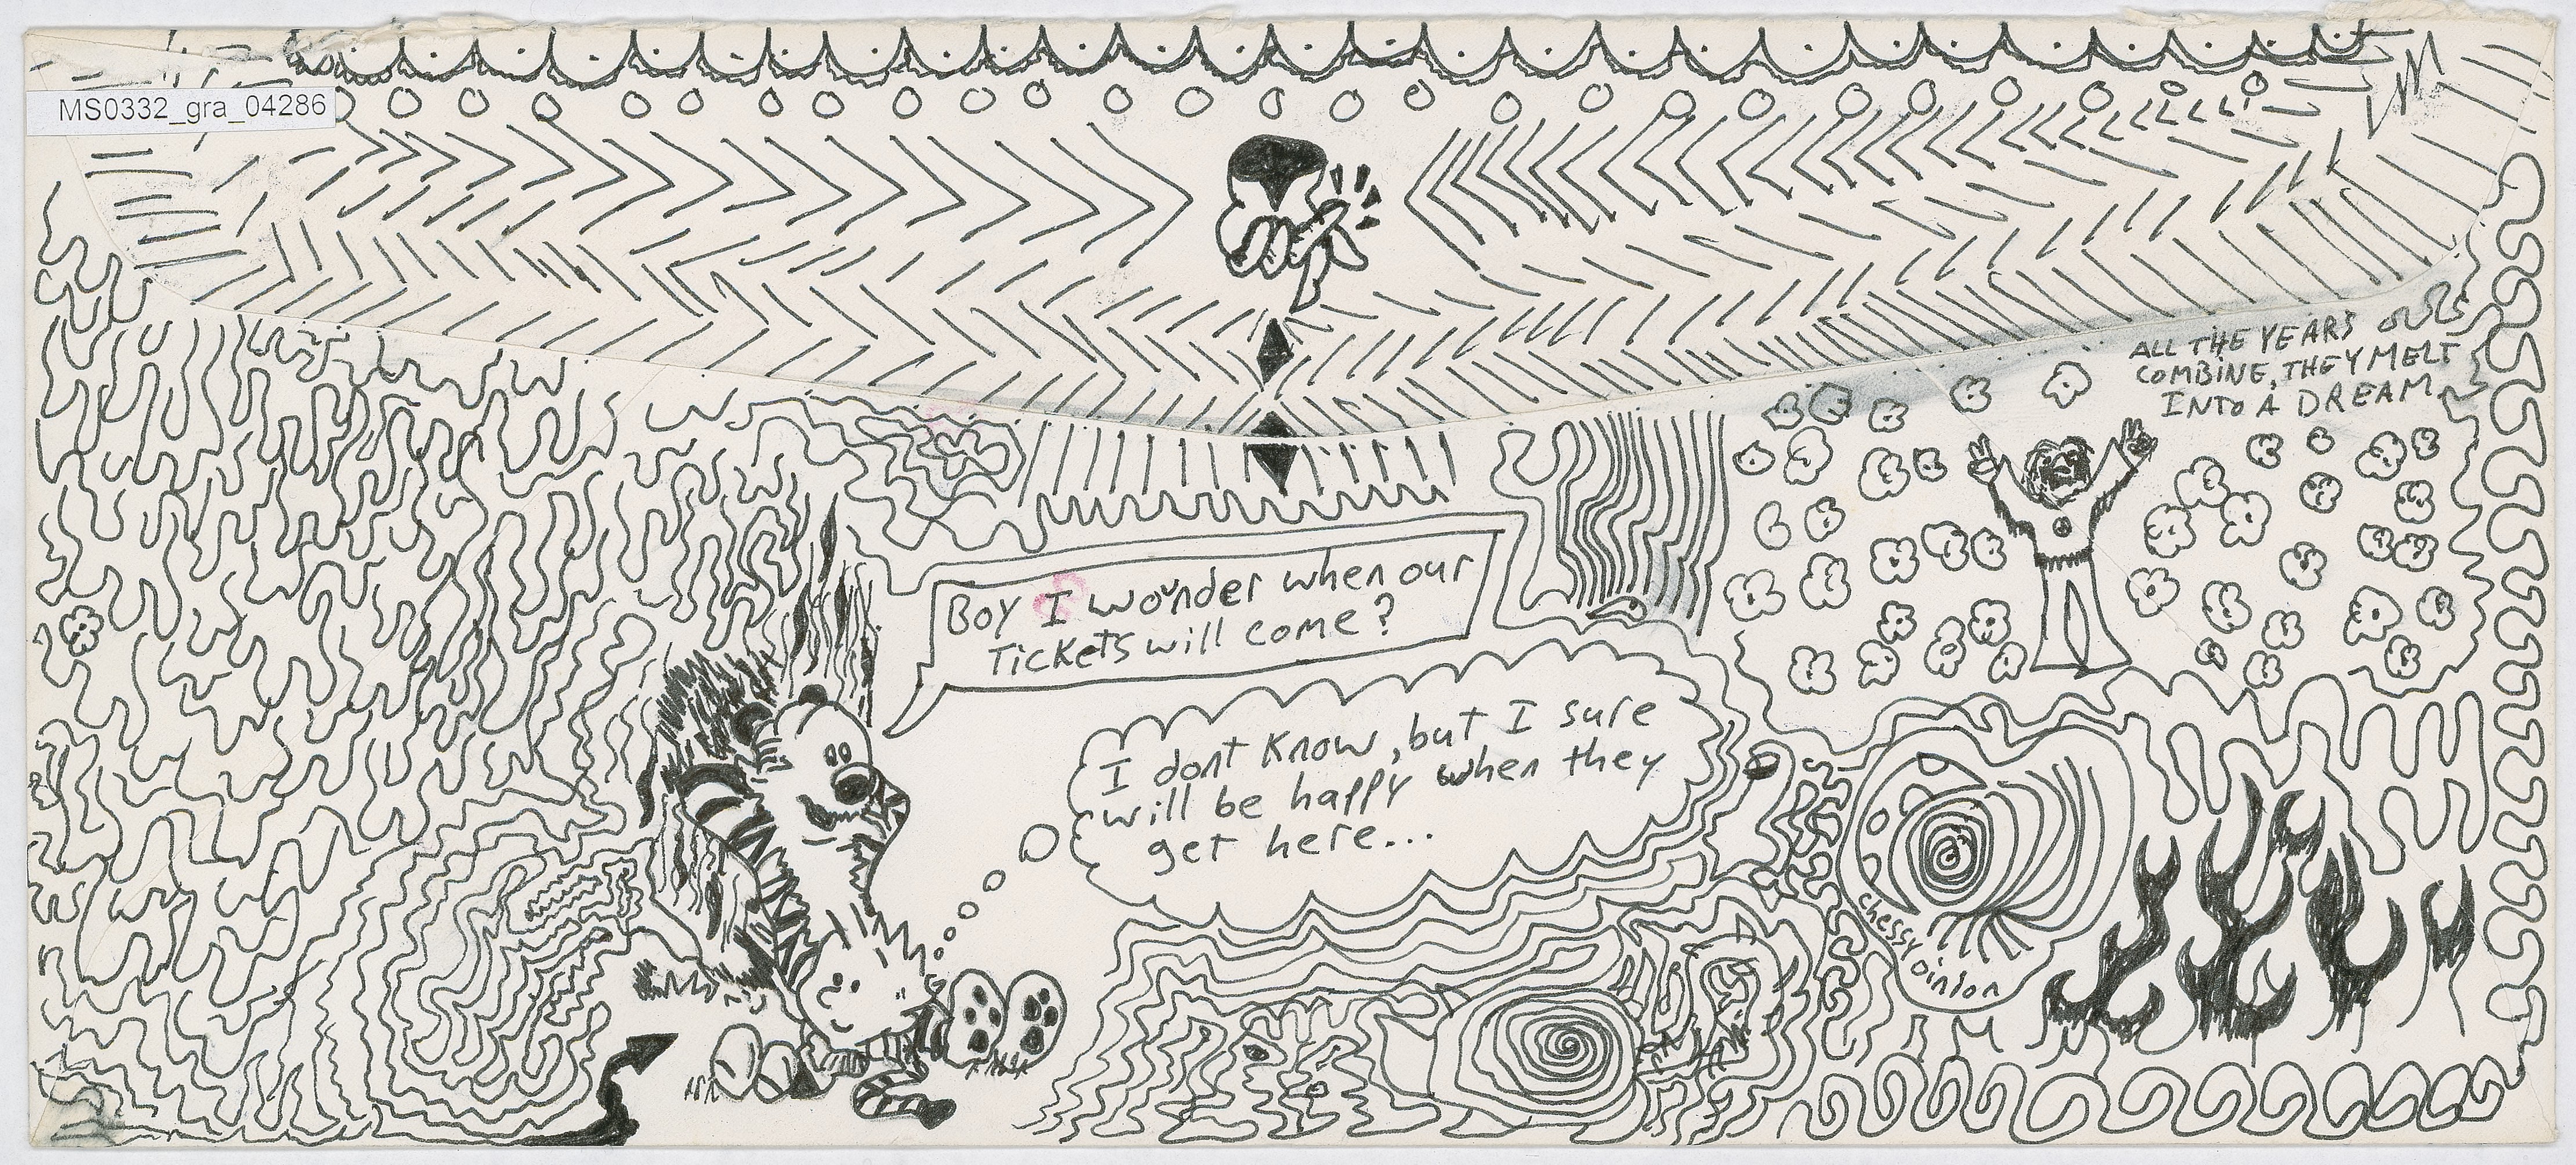 MS0332_gra_04286
ALL THE YEARS
COMBINE, THEY MELT
INTO A DREAM
Boy I wonder when our
Tickets will come?
I dont Know, but I sure
will be happy when they
get here...
chessy
oinion